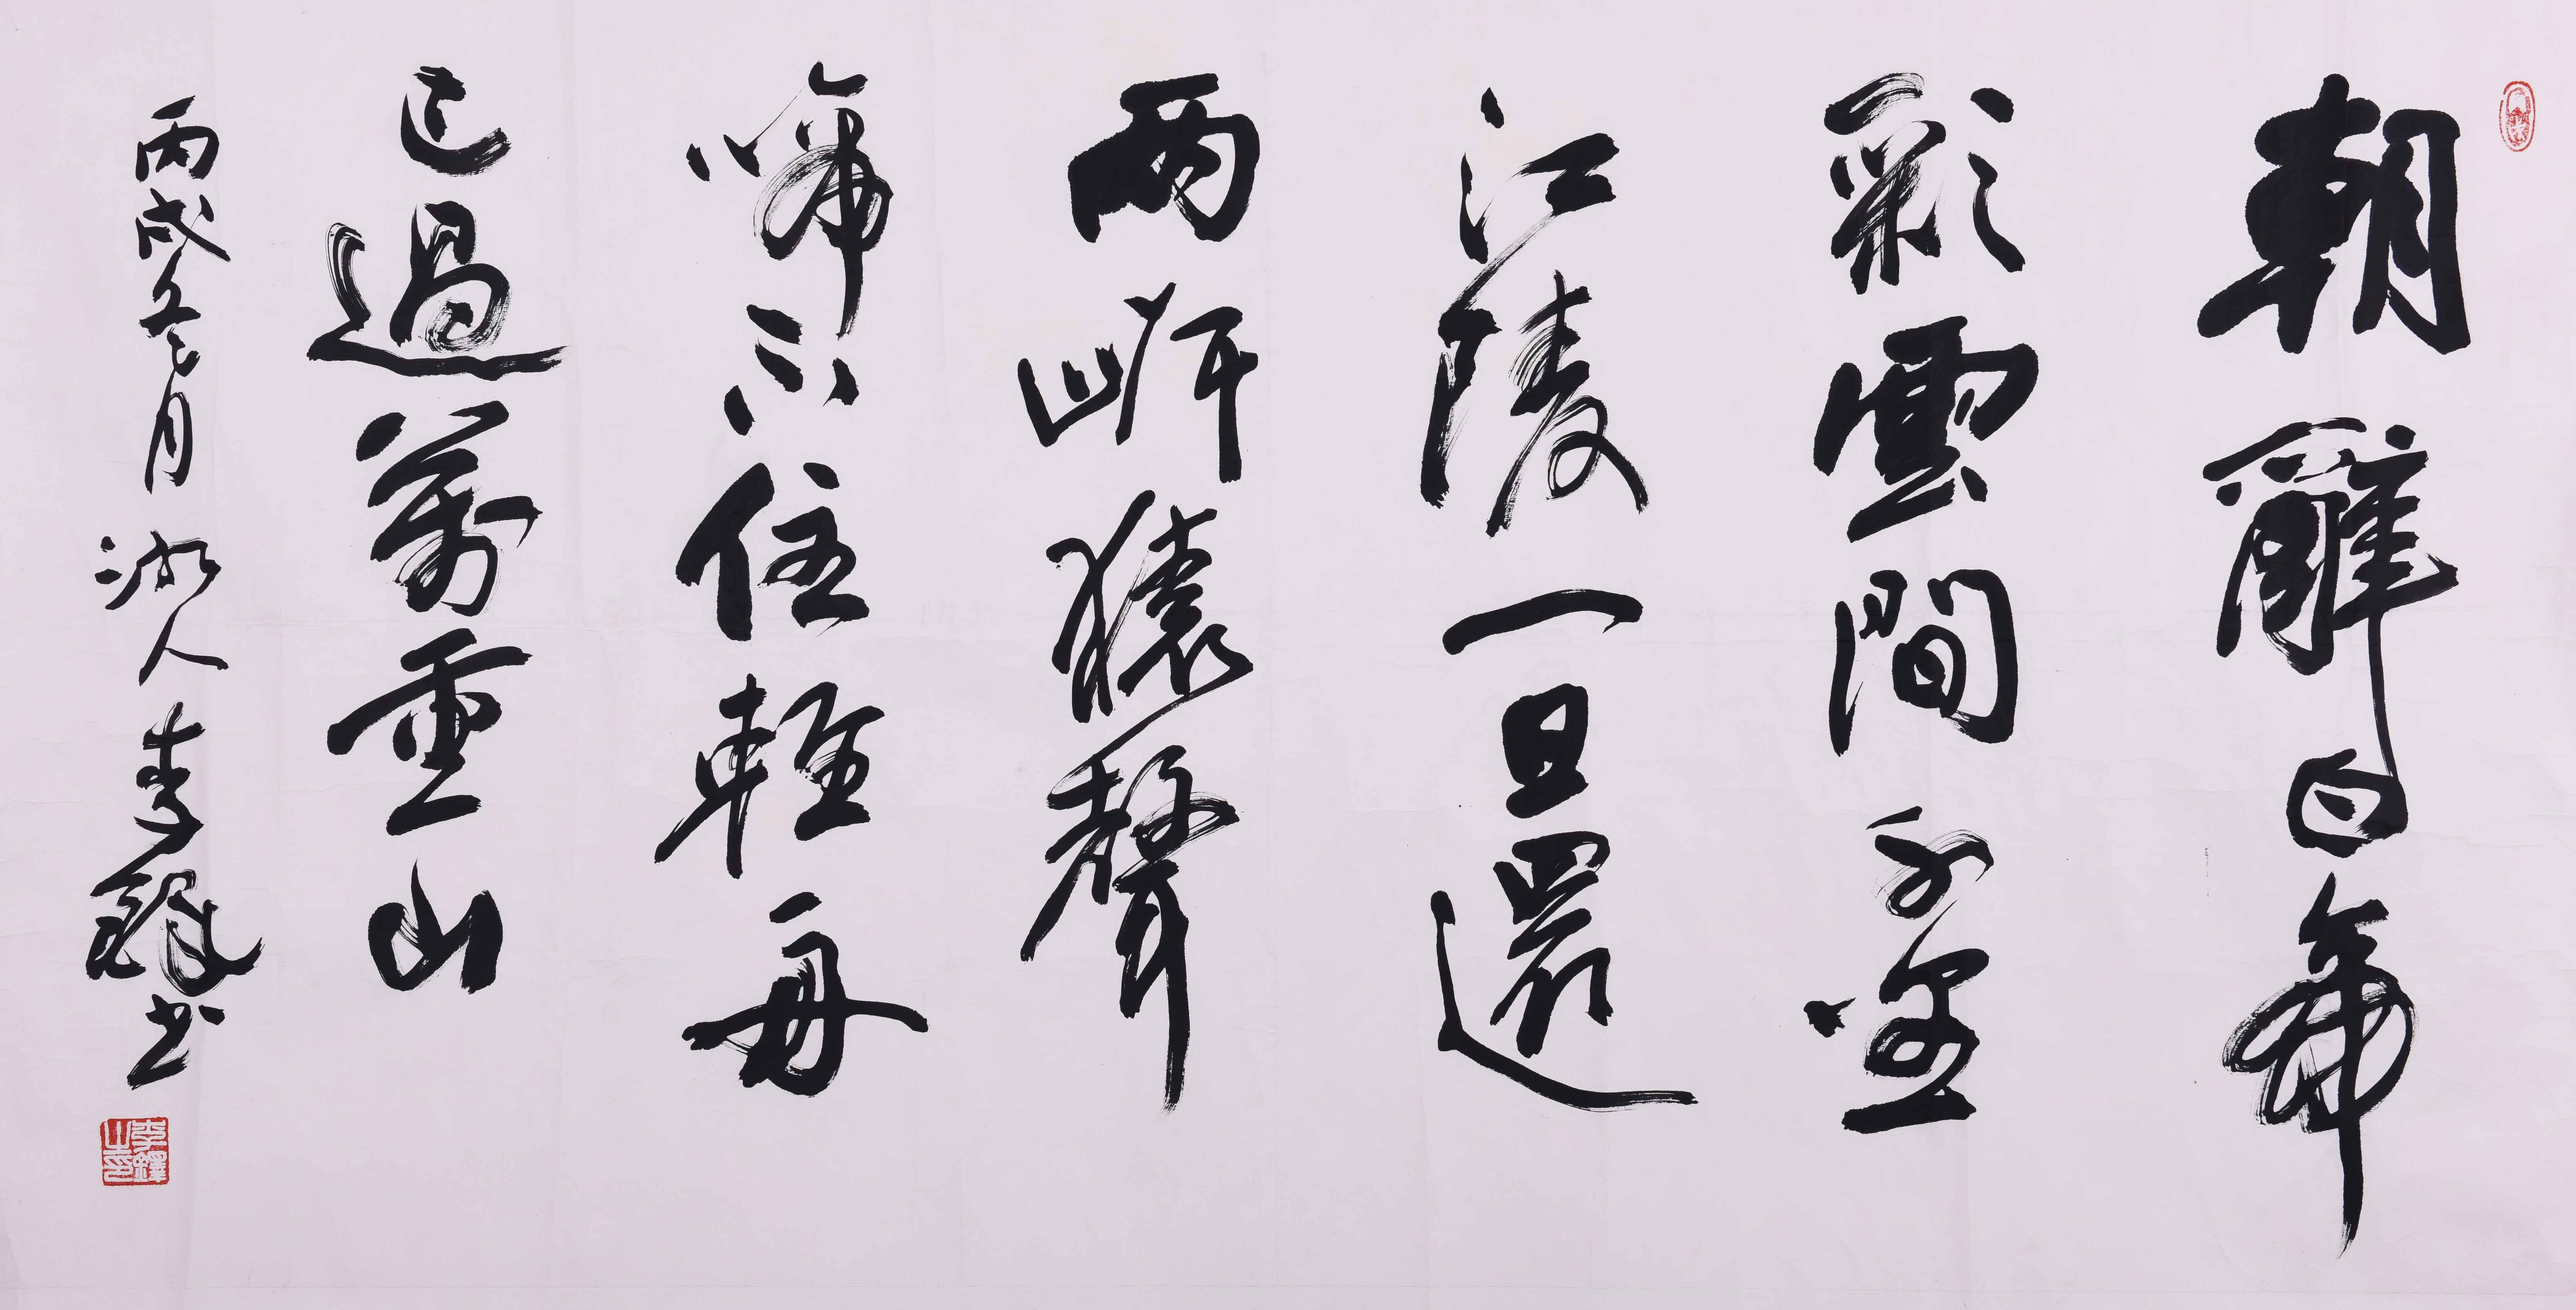 朝辭白帝
彩雲間千里
江陵一日還
兩岸猿聲
啼不住輕舟
已過萬重山
丙戌冬月 湘人李鐸書
李鐸之印